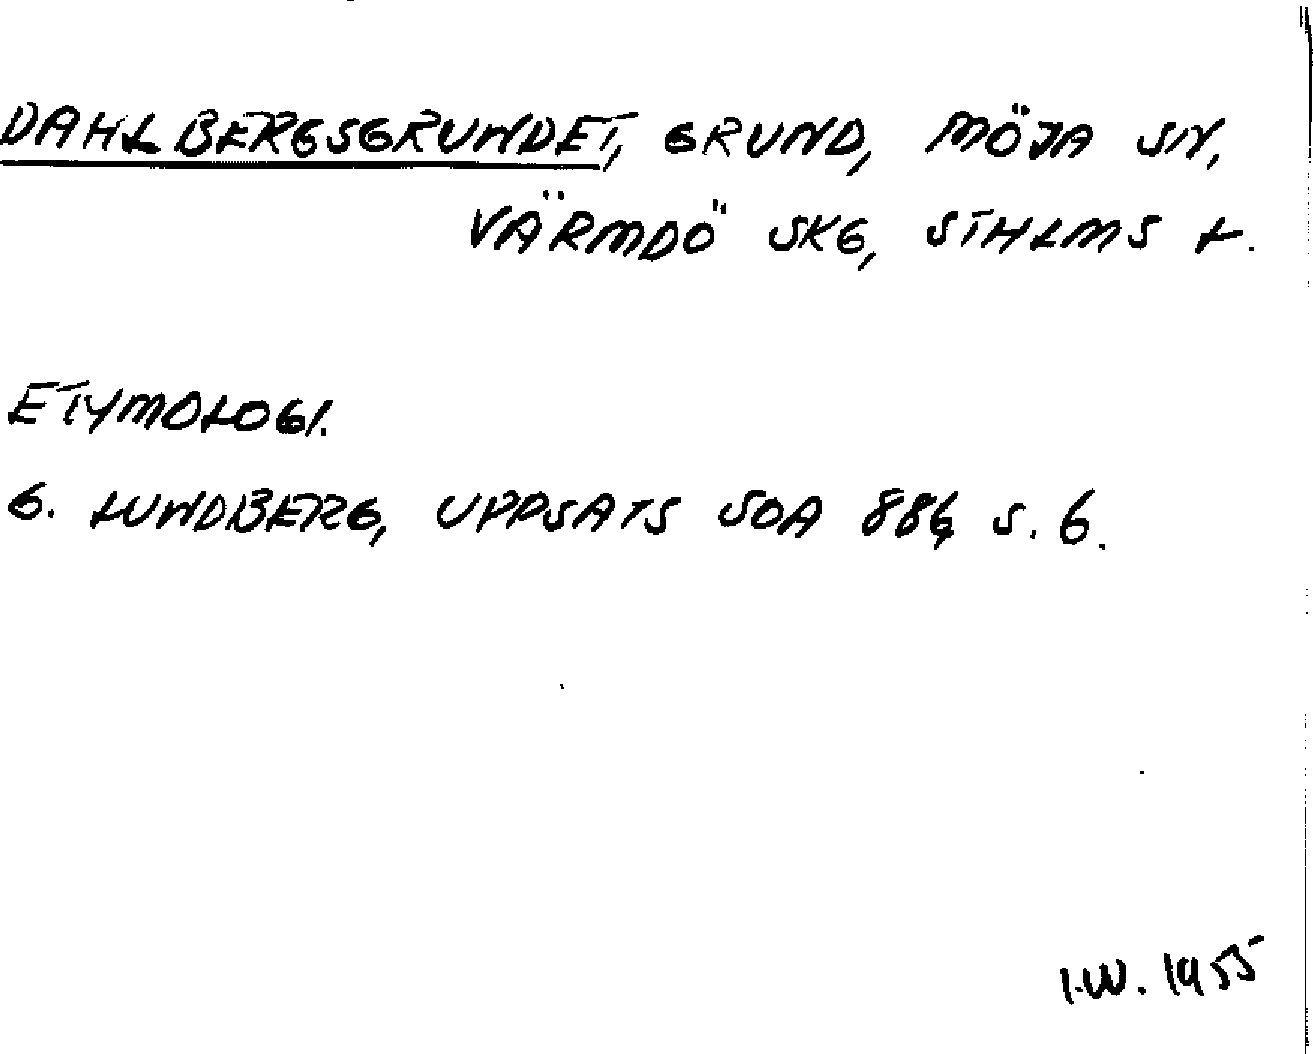 DAHLBERGSGRUNDET, GRUND, MÖJA SN,
VÄRMDÖ SKG, STHLMS L.
ETYMOLOGI.
G. LUNDBERG, UPPSATS SOA 886, S. 6.
I.W. 1955